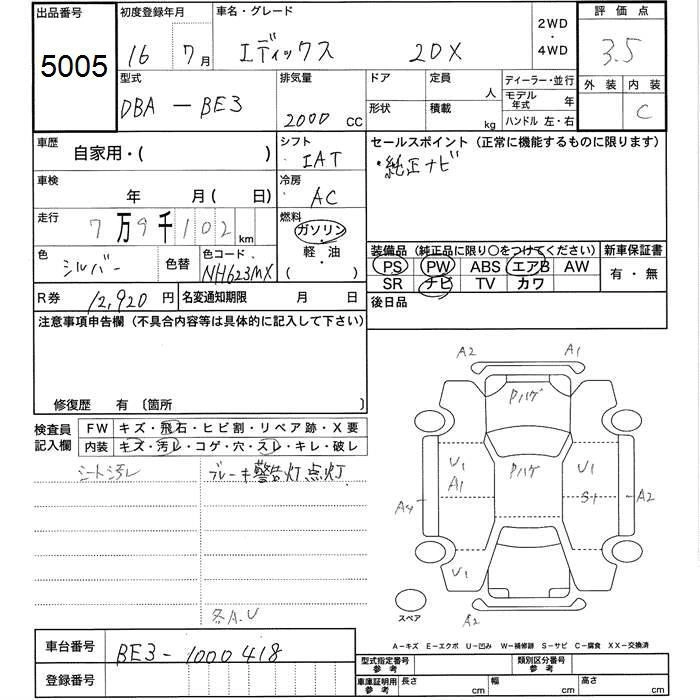 出品番号 初度登録年月 車名・グレード 2WD・4WD 評価点
5005 16年 7月 エディックス 20X 3.5
型式 排気量 ドア 定員 人 ディーラー・並行 外装 内装
DBA － BE3 2000 CC 形状 積載 kg モデル年式 年 C
ハンドル 左・右
車歴 自家用・( ) シフト IAT セールスポイント (正常に機能するものに限ります)
・純正ナビ
車検 年 月( 日) 冷房 AC
走行 7万9千102km 燃料 ガソリン・軽・油 ( )
色 シルバー 色替 色コード NH623MX
装備品 (純正品に限り○をつけてください) 新車保証書
PS PW ABS エアB AW 有・無
SR ナビ TV カワ
R券 12,920円 名変通知期限 月 日 後日品
注意事項申告欄 (不具合内容等は具体的に記入して下さい)
修復歴 有 〔箇所 〕
検査員記入欄 FW キズ・飛石・ヒビ割・リペア跡・X要
内装 キズ・汚レ・コゲ・穴・スレ・キレ・破レ
シート汚レ ブレーキ警告灯点灯
各A.U
A2 A1
Pハゲ
U1 Pハゲ U1
A1
A4 A2
U1
A2
スペア
A－キズ E－エクボ U－凹み W－補修跡 S－サビ C－腐食 XX－交換済
車台番号 BE3-1000418
登録番号
型式指定番号 参考 類別区分番号 参考
車庫証明用 参考 長さ cm 幅 cm 高さ cm